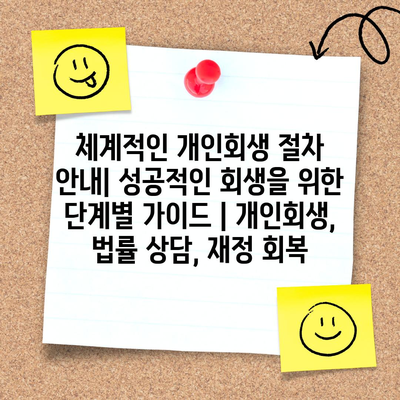 체계적인 개인회생 절차
안내| 성공적인 회생을 위한
단계별 가이드 | 개인회생,
법률 상담, 재정 회복